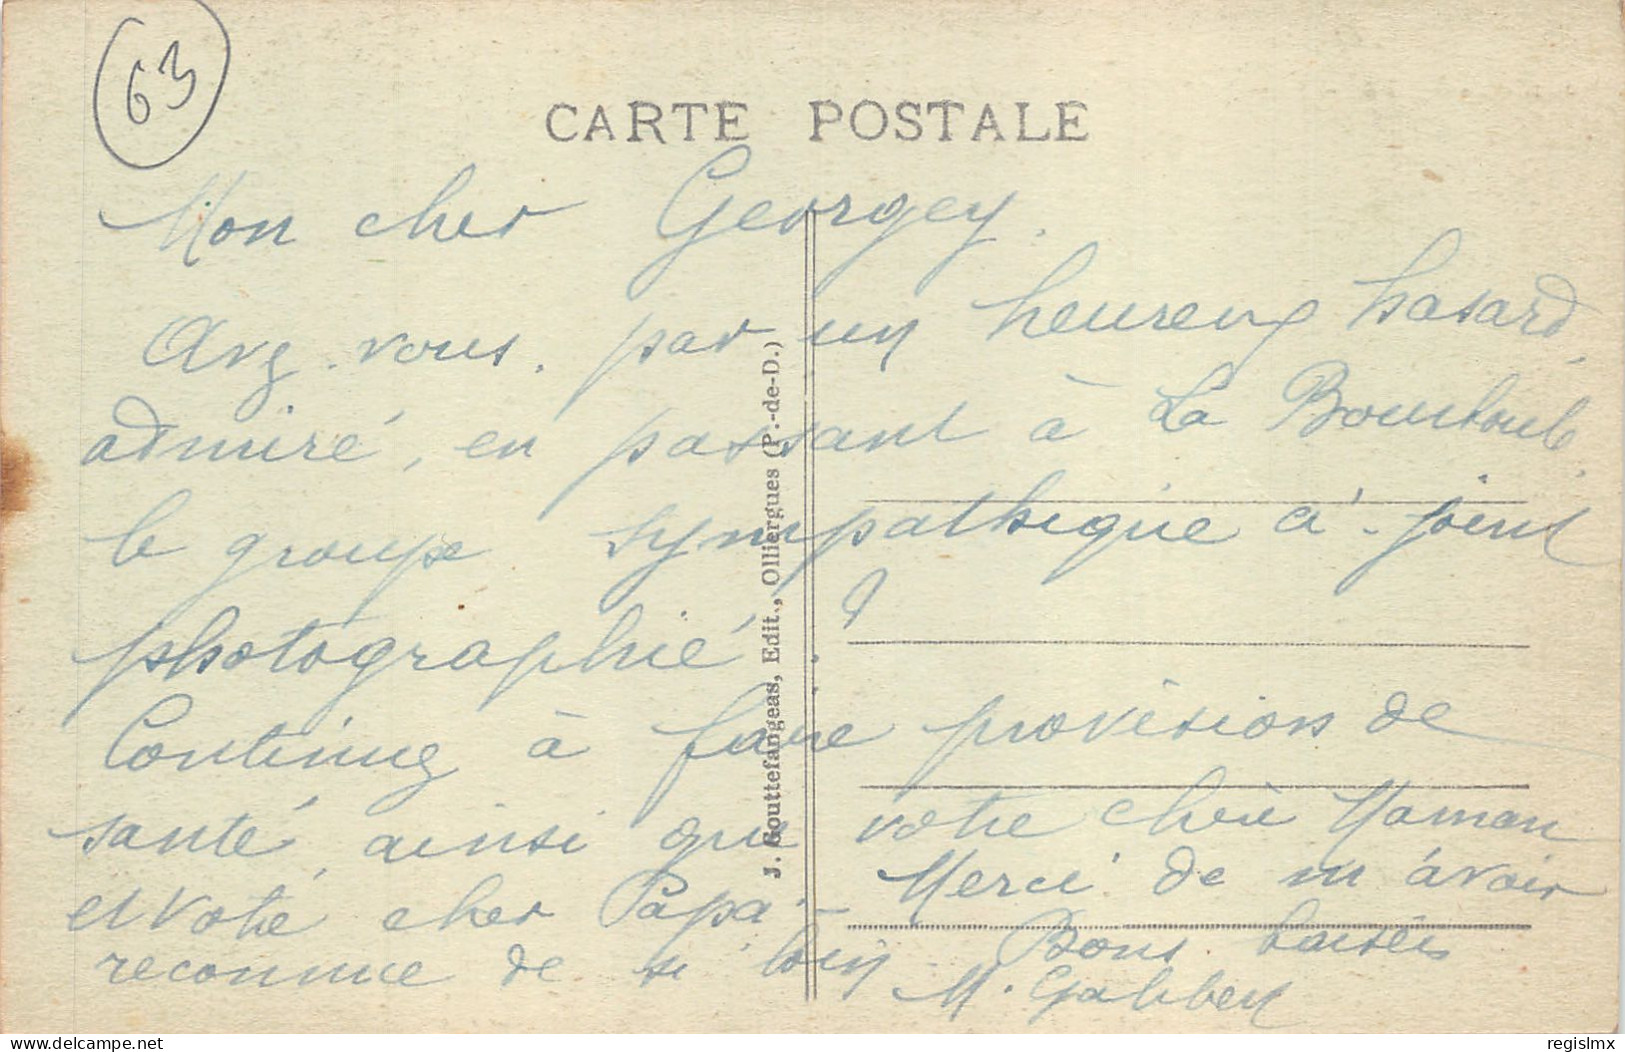 63
CARTE POSTALE
Mon cher Georgey.
Avez-vous, par un heureux hasard,
admiré, en passant à La Bourboule,
le groupe sympathique ci-joint
photographié ?
Continuez à faire provision de
santé, ainsi que votre chère Maman
et votre cher Papa. Merci de m'avoir
reconnue de si loin. Bons baisers
M.
J. Gouttefangeas, Edit., Olliergues (P.-de-D.)
delcampe.net
regislmx